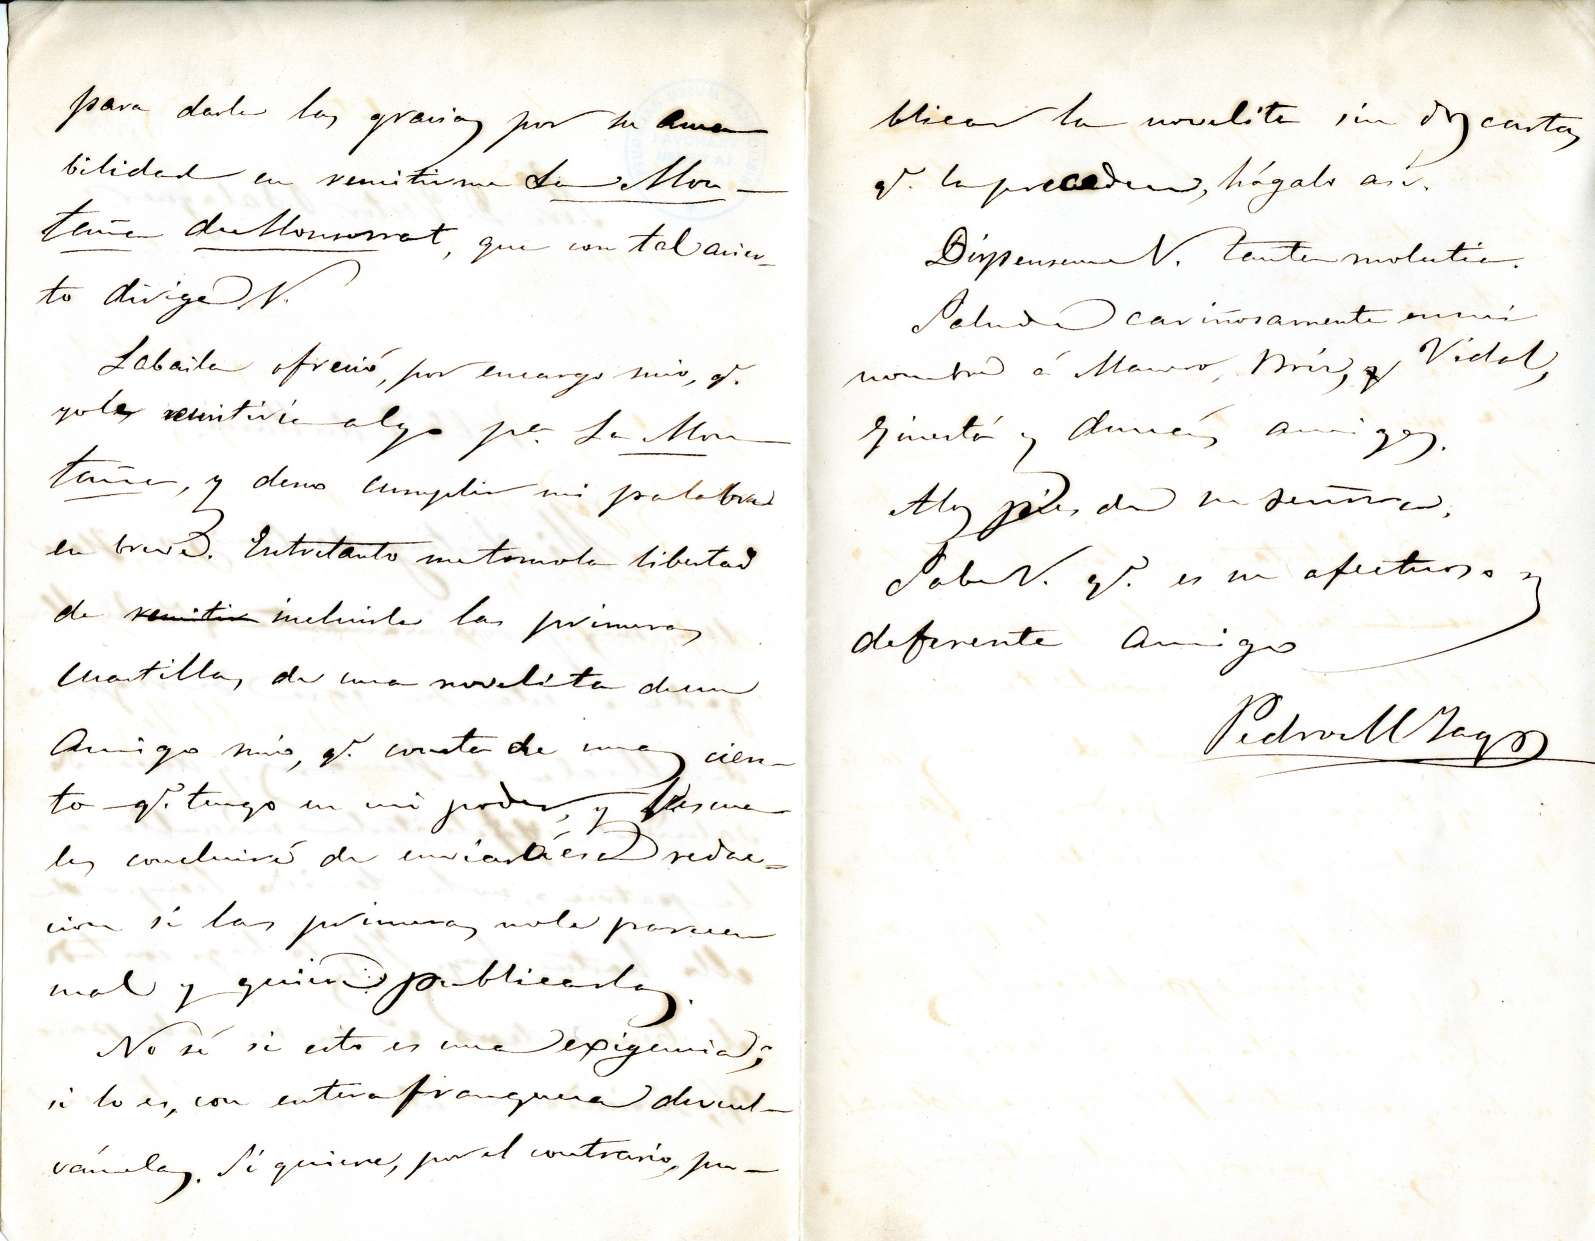 para darle las gracias por su ama
bilidad en remitirme La Mon—
taña de Monserrat, que con tal acier-
to dirige V.
Labaila ofreció, por encargo mio, q.e
yo les remitiria algo p.a La Mon
taña, y deseo cumplir mi palabra
en breve. Entretanto me tomo la libertad
de remitir incluirle las primeras
cuartillas de una novelita de un
amigo mio, q.e consta de unas cien-
to q.e tengo en mi poder, y las cua
les concluiré de enviar á esa redac-
cion si las primeras no le parecen
mal y quiere publicarlas.
No sé si esto es una exigencia;
si lo es, con entera franqueza devuel-
vámelas. Si quiere, por el contrario, pu—
blicar la novelita sin dos cartas
q.e la preceden, hágalo así.
Dispénseme V. tanta molestia.
Salude cariñosamente en mi
nombre á Mauro, Briz, y Vidal,
Ginestá y demás amigos.
A los piés de su señora.
Sabe V. q.e es su afectuoso y
deferente amigo
Pedro M Yago